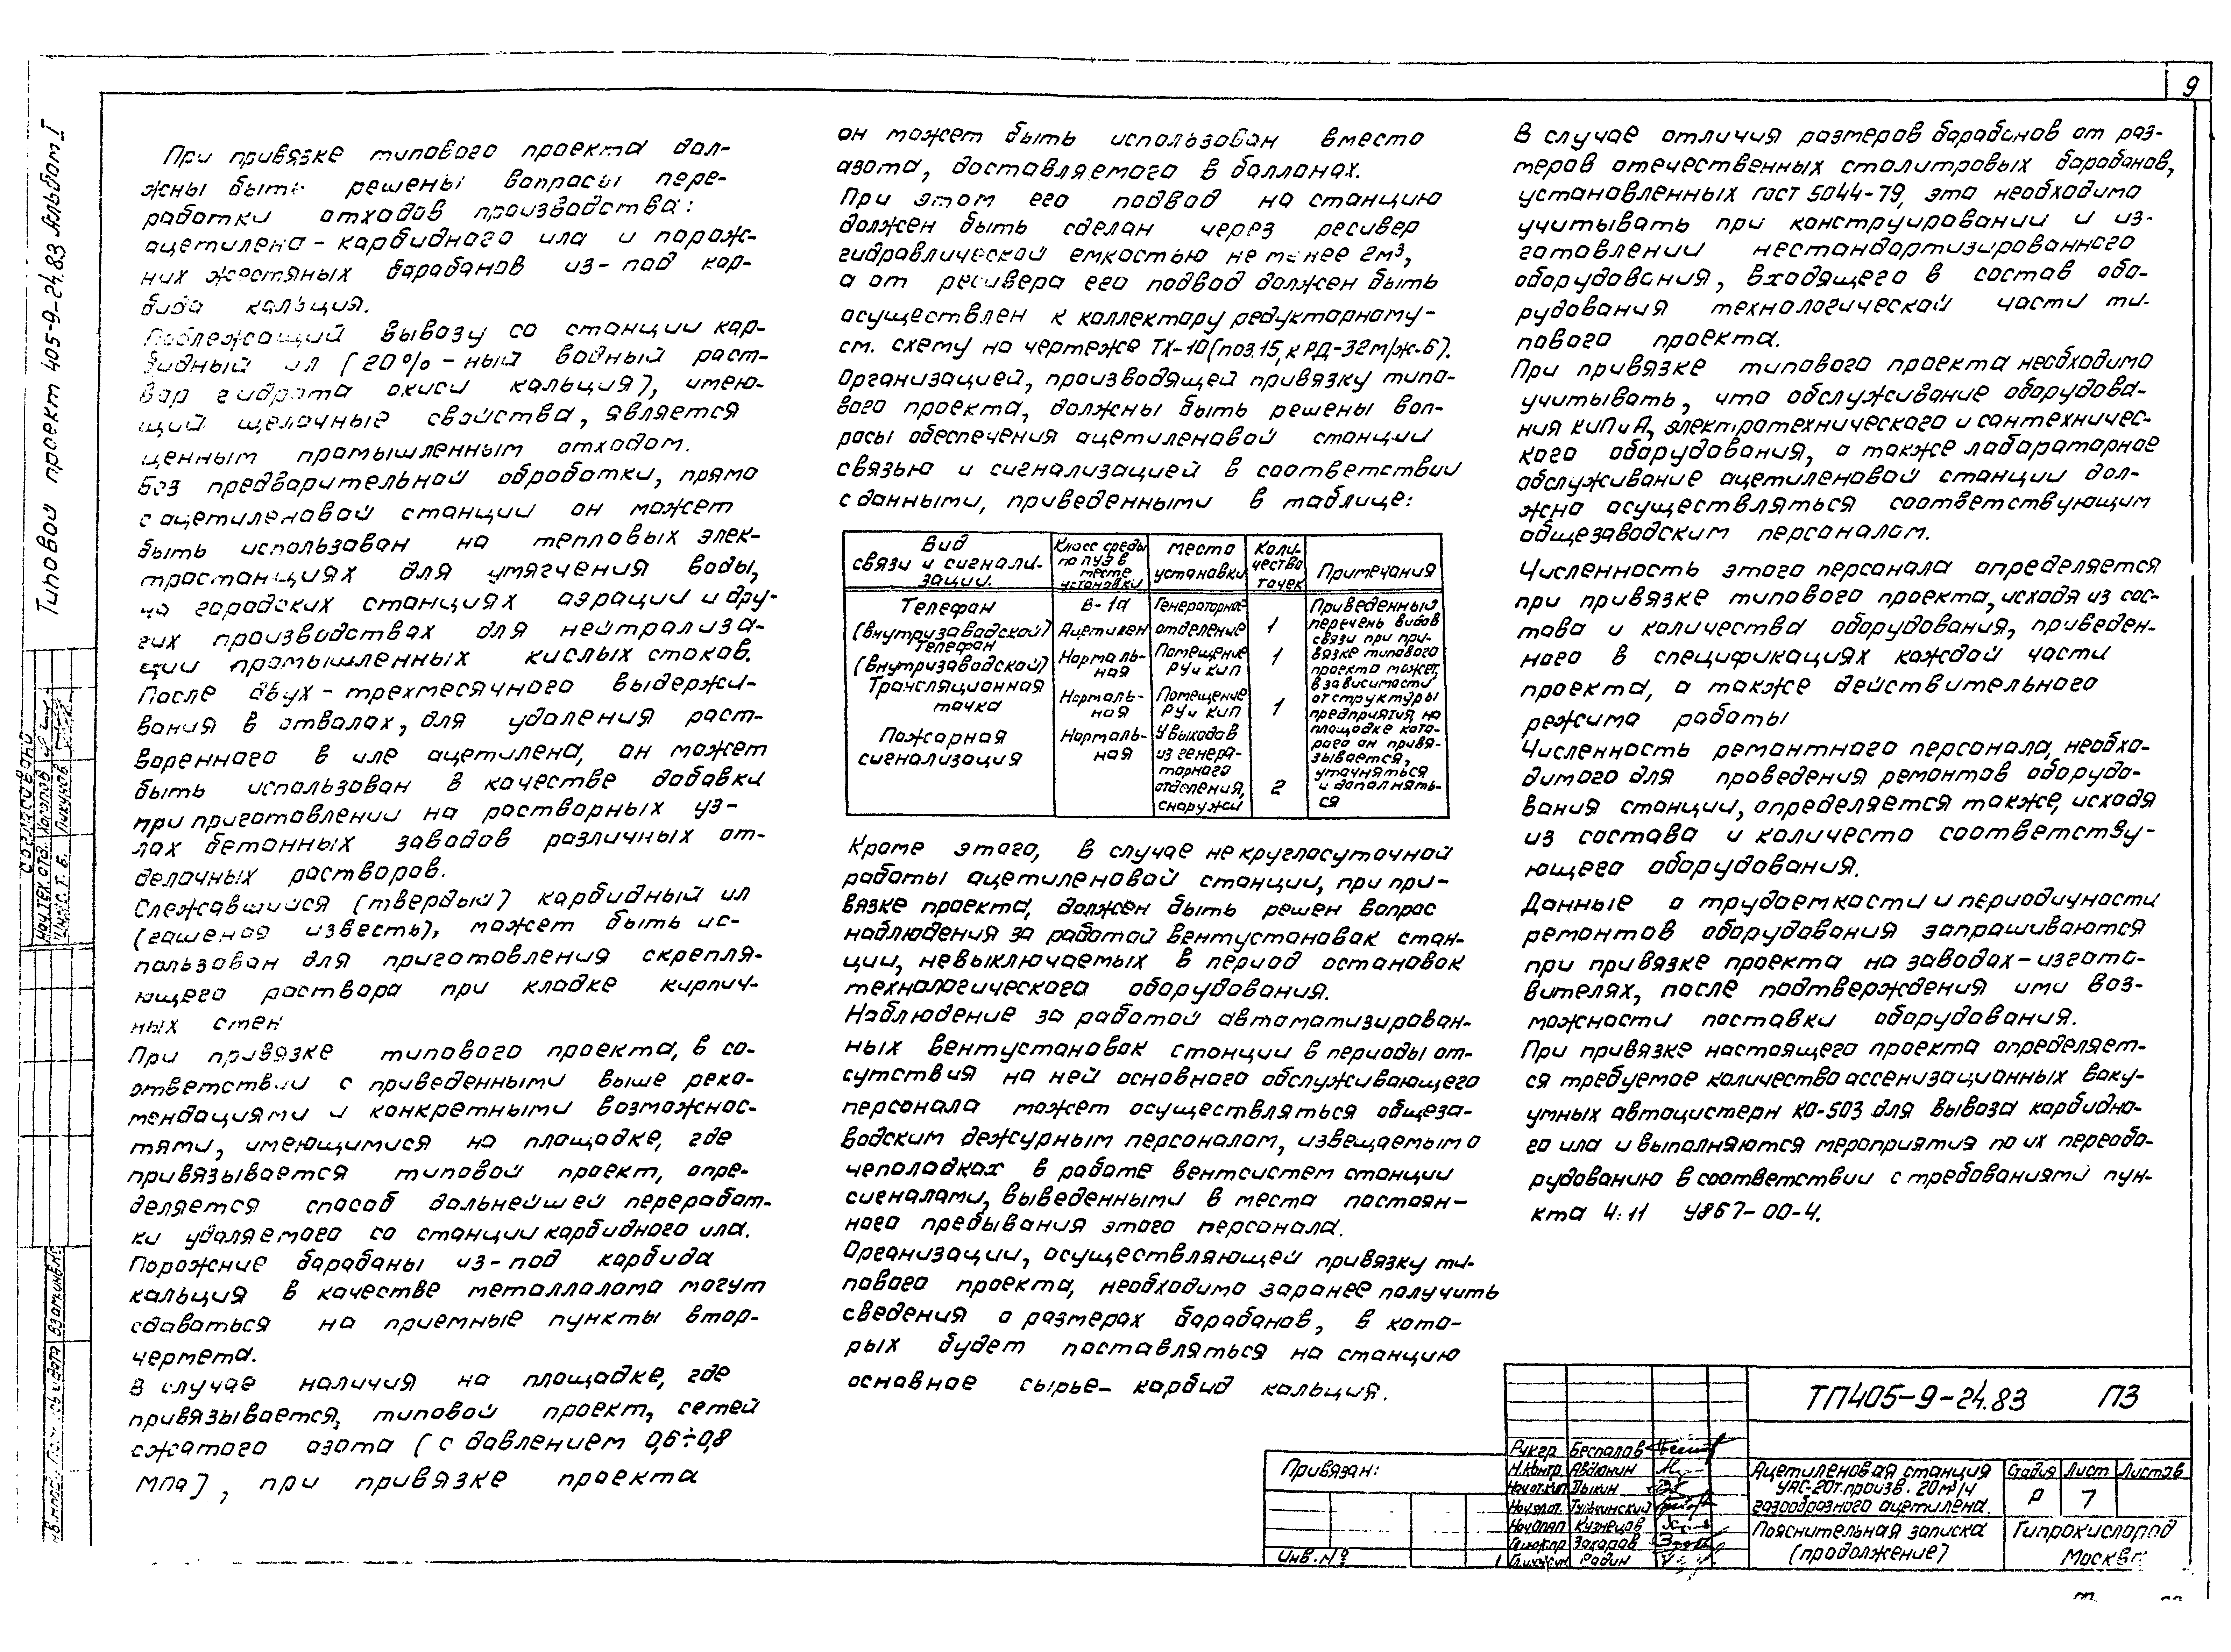 9
Типовой проект 405-9-24.83 Альбом I
При привязке типового проекта дол-
жны быть решены вопросы пере-
работки отходов производства:
ацетилена - карбидного ила и порож-
них жестяных барабанов из-под кар-
бида кальция.
Подлежащий вывозу со станции кар-
бидный ил (20%-ный водный раст-
вор гидрата окиси кальция), имею-
щий щелочные свойства, является
ценным промышленным отходом.
Без предварительной обработки, прямо
с ацетиленовой станции он может
быть использован на тепловых элек-
тростанциях для умягчения воды,
на городских станциях аэрации и дру-
гих производствах для нейтрализа-
ции промышленных кислых стоков.
После двух - трехмесячного выдержи-
вания в отвалах, для удаления раст-
воренного в иле ацетилена, он может
быть использован в качестве добавки
при приготовлении на растворных уз-
лах бетонных заводов различных от-
делочных растворов.
Слежавшийся (твердый) карбидный ил
(гашеная известь), может быть ис-
пользован для приготовления скрепля-
ющего раствора при кладке кирпич-
ных стен
При привязке типового проекта, в со-
ответствии с приведенными выше реко-
мендациями и конкретными возможнос-
тями, имеющимися на площадке, где
привязывается типовой проект, опре-
деляется способ дальнейшей переработ-
ки удаляемого со станции карбидного ила.
Порожние барабаны из-под карбида
кальция в качестве металлолома могут
сдаваться на приемные пункты втор-
чермета.
В случае наличия на площадке, где
привязывается, типовой проект, сетей
сжатого азота (с давлением 0,6÷0,8
МПа), при привязке проекта
он может быть использован вместо
азота, доставляемого в баллонах.
При этом его подвод на станцию
должен быть сделан через ресивер
гидравлической емкостью не менее 2м³,
а от ресивера его подвод должен быть
осуществлен к коллектору редукторному-
см. схему на чертеже ТХ-10 (поз.15, к РД-32м/ж-6).
Организацией, производящей привязку типо-
вого проекта, должны быть решены воп-
росы обеспечения ацетиленовой станции
связью и сигнализацией в соответствии
с данными, приведенными в таблице:
Вид связи и сигнали-зации. Класс среды по ПУЭ в месте установки Место установки Коли-чество точек Примечания
Телефон (внутризаводской) В-1а Ацетилен Генераторное отделение 1
Телефон (внутризаводской) Нормаль-ная Помещение РУ и КИП 1
Трансляционная точка Нормаль-ная Помещение РУ и КИП 1
Пожарная сигнализация Нормаль-ная У выходов из генера-торного отделения, снаружи 2
Приведенный
перечень видов
связи при при-
вязке типового
проекта может,
в зависимости
от структуры
предприятия, на
площадке кото-
рого он привя-
зывается,
уточняться
и дополнять-
ся
Кроме этого, в случае не круглосуточной
работы ацетиленовой станции, при при-
вязке проекта, должен быть решен вопрос
наблюдения за работой вентустановок стан-
ции, невыключаемых в период остановок
технологического оборудования.
Наблюдение за работой автоматизирован-
ных вентустановок станции в периоды от-
сутствия на ней основного обслуживающего
персонала может осуществляться общеза-
водским дежурным персоналом, извещаемым о
неполадках в работе вентсистем станции
сигналами, выведенными в места постоян-
ного пребывания этого персонала.
Организации, осуществляющей привязку ти-
пового проекта, необходимо заранее получить
сведения о размерах барабанов, в кото-
рых будет поставляться на станцию
основное сырье- карбид кальция.
В случае отличия размеров барабанов от раз-
меров отечественных столитровых барабанов,
установленных ГОСТ 5044-79, это необходимо
учитывать при конструировании и из-
готовлении нестандартизированного
оборудования, входящего в состав обо-
рудования технологической части ти-
пового проекта.
При привязке типового проекта необходимо
учитывать, что обслуживание оборудова-
ния КИП и А, электротехнического и сантехничес-
кого оборудования, а также лабораторное
обслуживание ацетиленовой станции дол-
жно осуществляться соответствующим
общезаводским персоналом.
Численность этого персонала определяется
при привязке типового проекта, исходя из сос-
тава и количества оборудования, приведен-
ного в спецификациях каждой части
проекта, а также действительного
режима работы
Численность ремонтного персонала, необхо-
димого для проведения ремонтов оборудо-
вания станции, определяется также, исходя
из состава и количесто соответству-
ющего оборудования.
Данные о трудоемкости и периодичности
ремонтов оборудования запрашиваются
при привязке проекта на заводах-изгото-
вителях, после подтверждения ими воз-
можности поставки оборудования.
При привязке настоящего проекта определяет-
ся требуемое количество ассенизационных ваку-
умных автоцистерн КО-503 для вывоза карбидно-
го ила и выполняются мероприятия по их переобо-
рудованию в соответствии с требованиями пун-
кта 4.11 У867-00-4.
Согласовано
Нач.тех.отд. Хагород
Пикунов
Взам.инв.№
Привязан:
Инв.№
Рук.гр. Беспалов
Н.контр. Авдюнин
Нач.от.кип Пыкин
Нач.эл.от. Тульчинский
Нач.опап Кузнецов
Гл.инж.пр. Захаров
Радин
ТП405-9-24.83 ПЗ
Ацетиленовая станция
УАС-20т.произв. 20м³/ч
газообразного ацетилена.
Стадия Лист Листов
Р 7
Пояснительная записка
(продолжение)
Гипрокислород
Москва